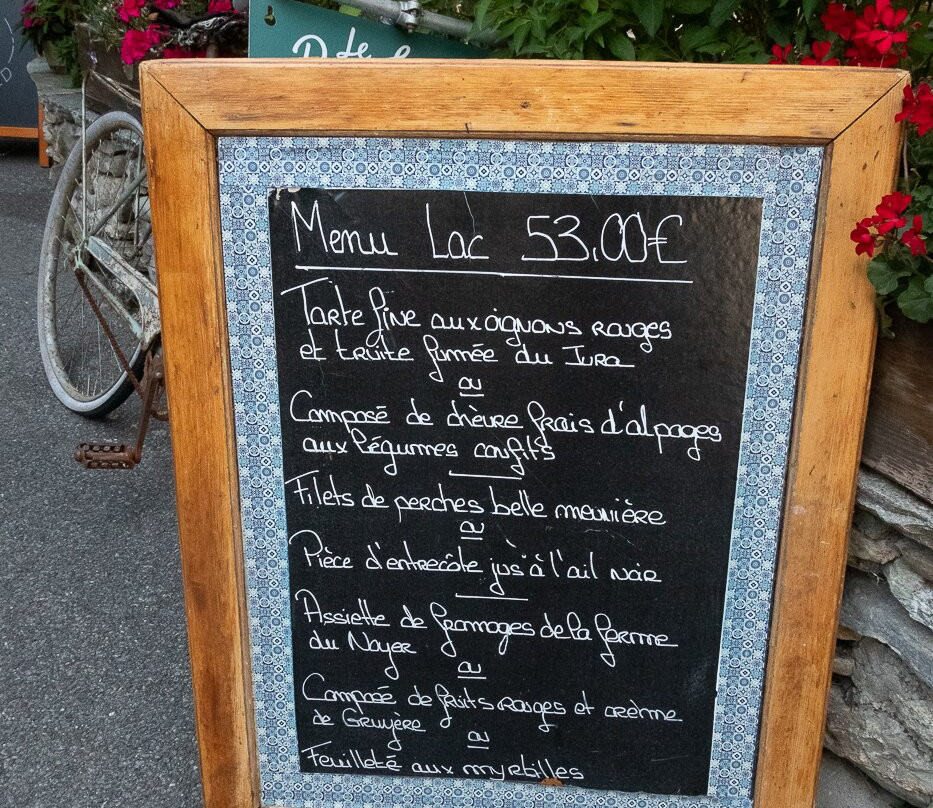 Menu Lac 53,00€
Tarte fine aux oignons rouges
et truite fumée du Jura
ou
Composé de chèvre frais d'alpages
aux légumes confits
Filets de perches belle meunière
ou
Pièce d'entrecôte jus à l'ail noir
Assiette de fromages de la ferme
du Noyer
ou
Compoée de fruits rouges et crème
de Gruyère
ou
Feuilleté aux myrtilles